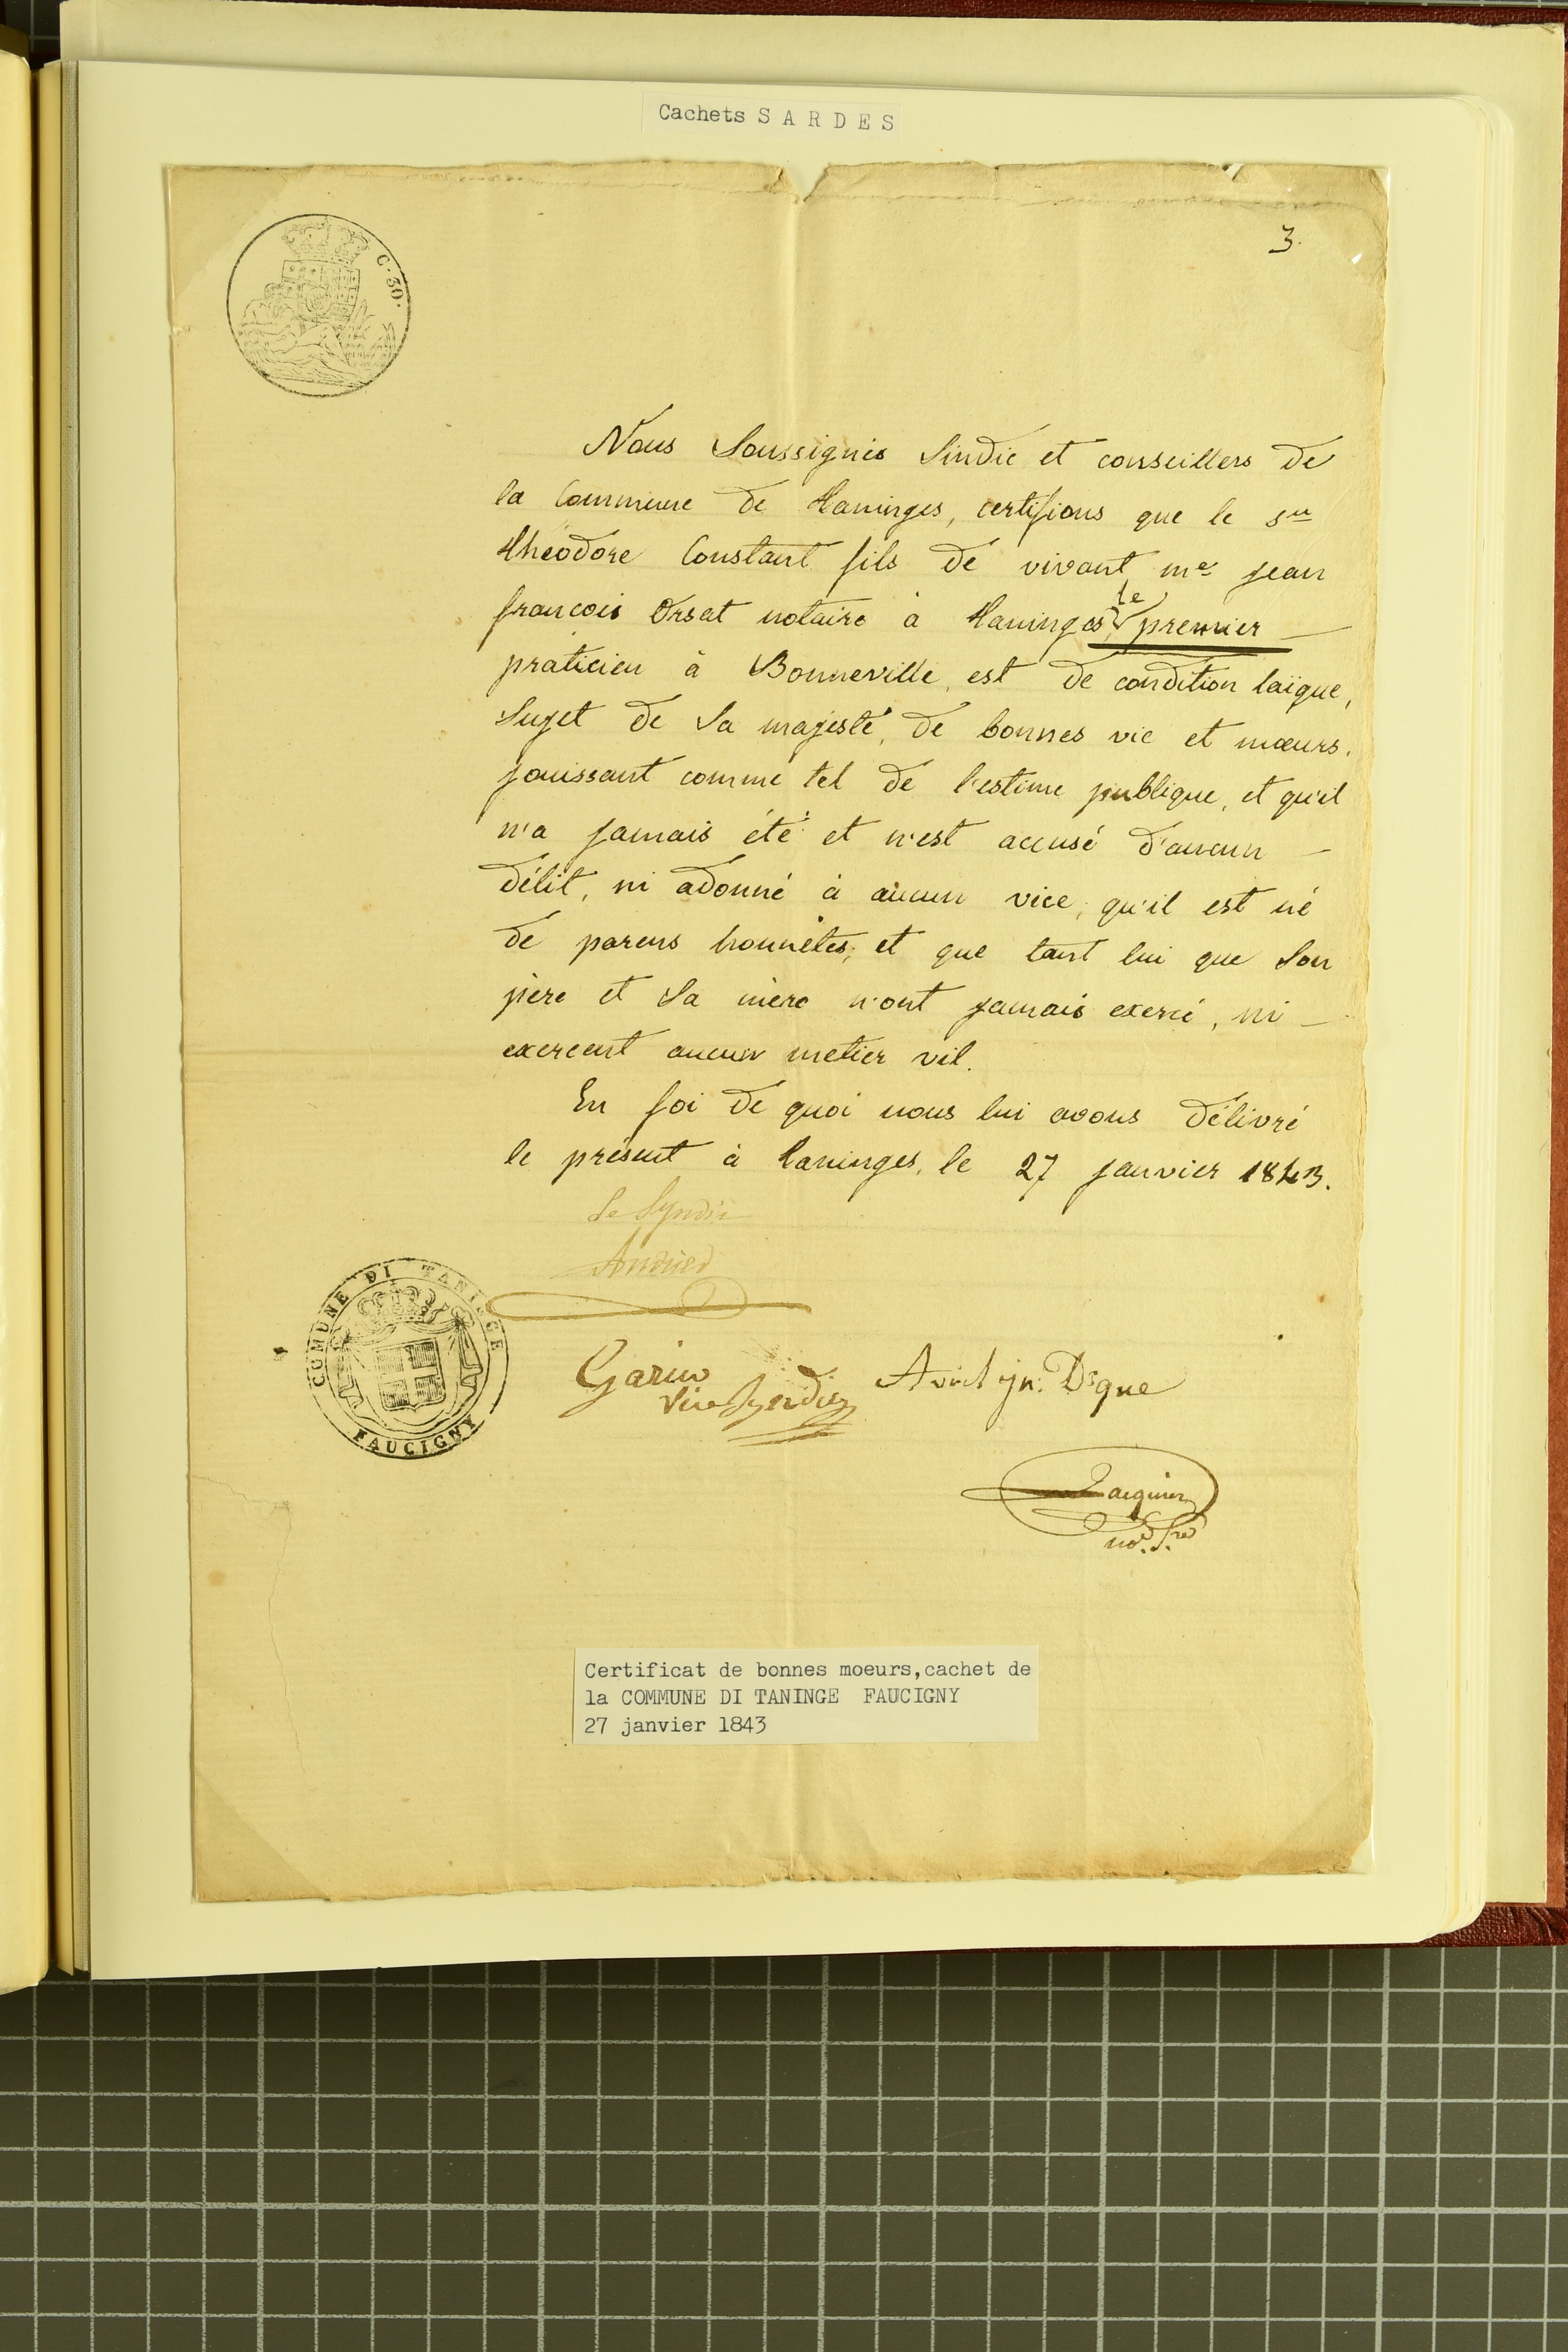 Cachets SARDES
C. 30.
3.
Nous Soussignés Sindic et conseillers de
la Commune de Taninges, certifions que le sr
théodore Constant fils de vivant me jean
françois Orsat notaire à Taninges, le premier
praticien à Bonneville, est de condition laïque,
Sujet de Sa majesté, de bonnes vie et mœurs,
jouissant comme tel de l'estime publique, et qu'il
n'a jamais été et n'est accusé d'aucun
délit, ni adonné à aucun vice, qu'il est né
de parens honnêtes, et que tant lui que Son
père et Sa mère n'ont jamais exercé, ni
exercent aucun metier vil.
En foi de quoi nous lui avons délivré
le présent à taninges, le 27 janvier 1843.
Le Syndic
COMUNE DI TANINGE
FAUCIGNY
Garin
Vice Syndic
Avril jn. Dque
Jacquier
Certificat de bonnes moeurs,cachet de
la COMMUNE DI TANINGE FAUCIGNY
27 janvier 1843